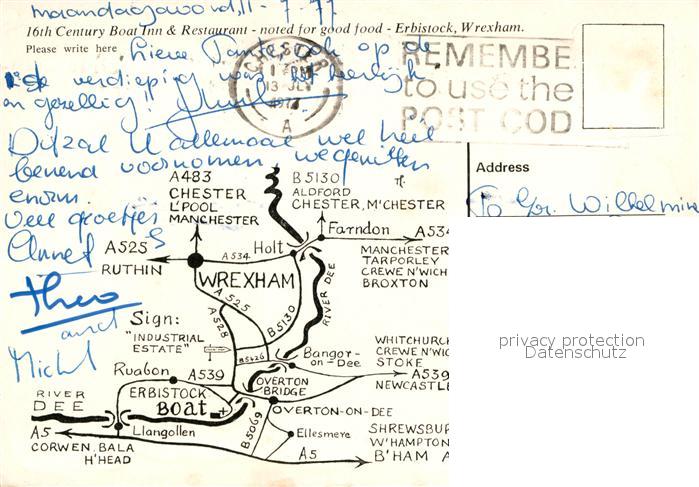 maandagavond, 11-7-77
16th Century Boat Inn & Restaurant - noted for good food - Erbistock, Wrexham.
Please write here
Lieve Tante, ook op de
verdieping was het heerlijk
en gezellig!
Dit zal U allemaal wel heel
bekend voorkomen, we genieten
enorm.
Vele groetjes
Annet
Theo
and
Michel
CHESTER
1 PM
13 JLY
1977
A
REMEMBE
to use the
POST COD
Address
To Gr. Wilhelmina
A483
CHESTER
L'POOL
MANCHESTER
B5130
ALDFORD
CHESTER, M'CHESTER
Farndon
A534
MANCHESTER
TARPORLEY
CREWE N'WICH
BROXTON
A525
RUTHIN
A534
Holt
WREXHAM
RIVER DEE
A525
A528
B5130
Sign:
"INDUSTRIAL
ESTATE"
B5426
Bangor-
on-Dee
WHITCHURC
CREWE N'WIC
STOKE
A539
NEWCASTLE
Ruabon
A539
OVERTON
BRIDGE
RIVER
DEE
ERBISTOCK
BOAT
OVERTON-ON-DEE
A5
Llangollen
B5069
Ellesmere
SHREWSBUR
W'HAMPTON
B'HAM
CORWEN, BALA
H'HEAD
A5
privacy protection
Datenschutz